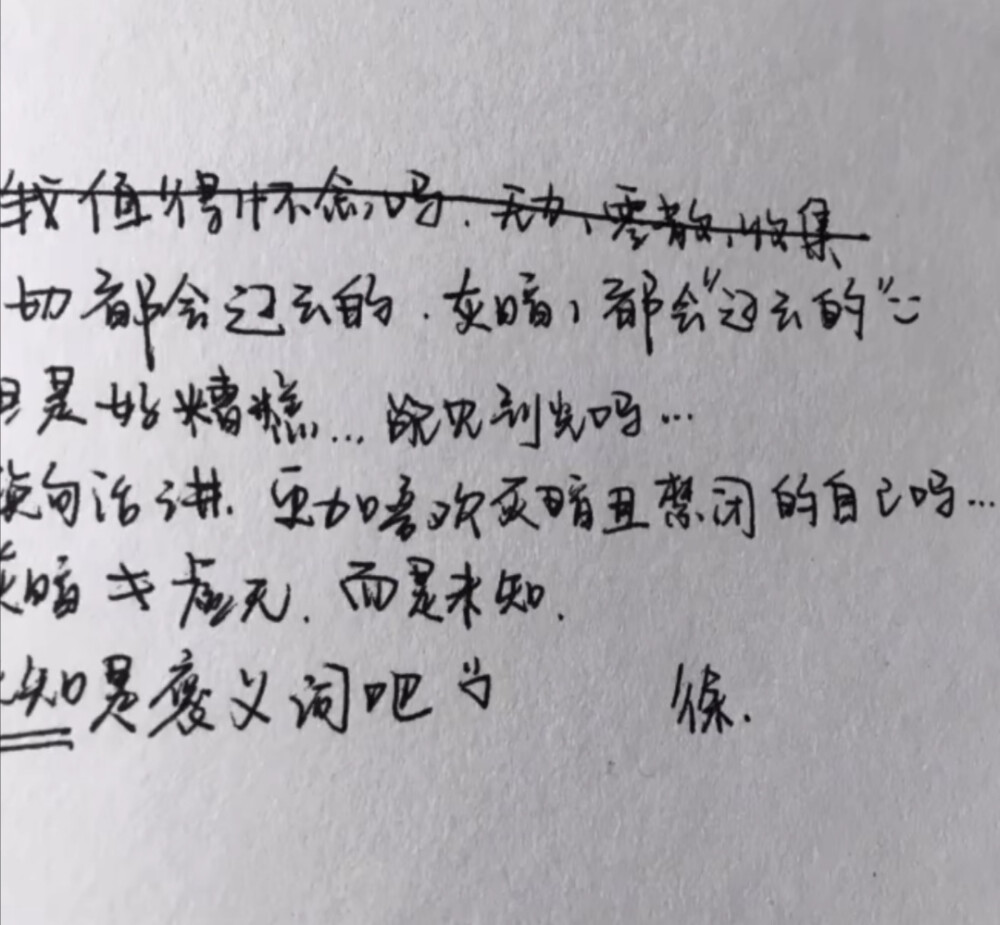 我值得怀念吗.无力、零散、收集
切都会过去的.灰暗,都会“过去的”
但是好糟糕...能见到光吗...
换句话讲.更加喜欢灰暗且禁闭的自己吗...
灰暗 虚无.而是未知.
知是褒义词吧
徐.